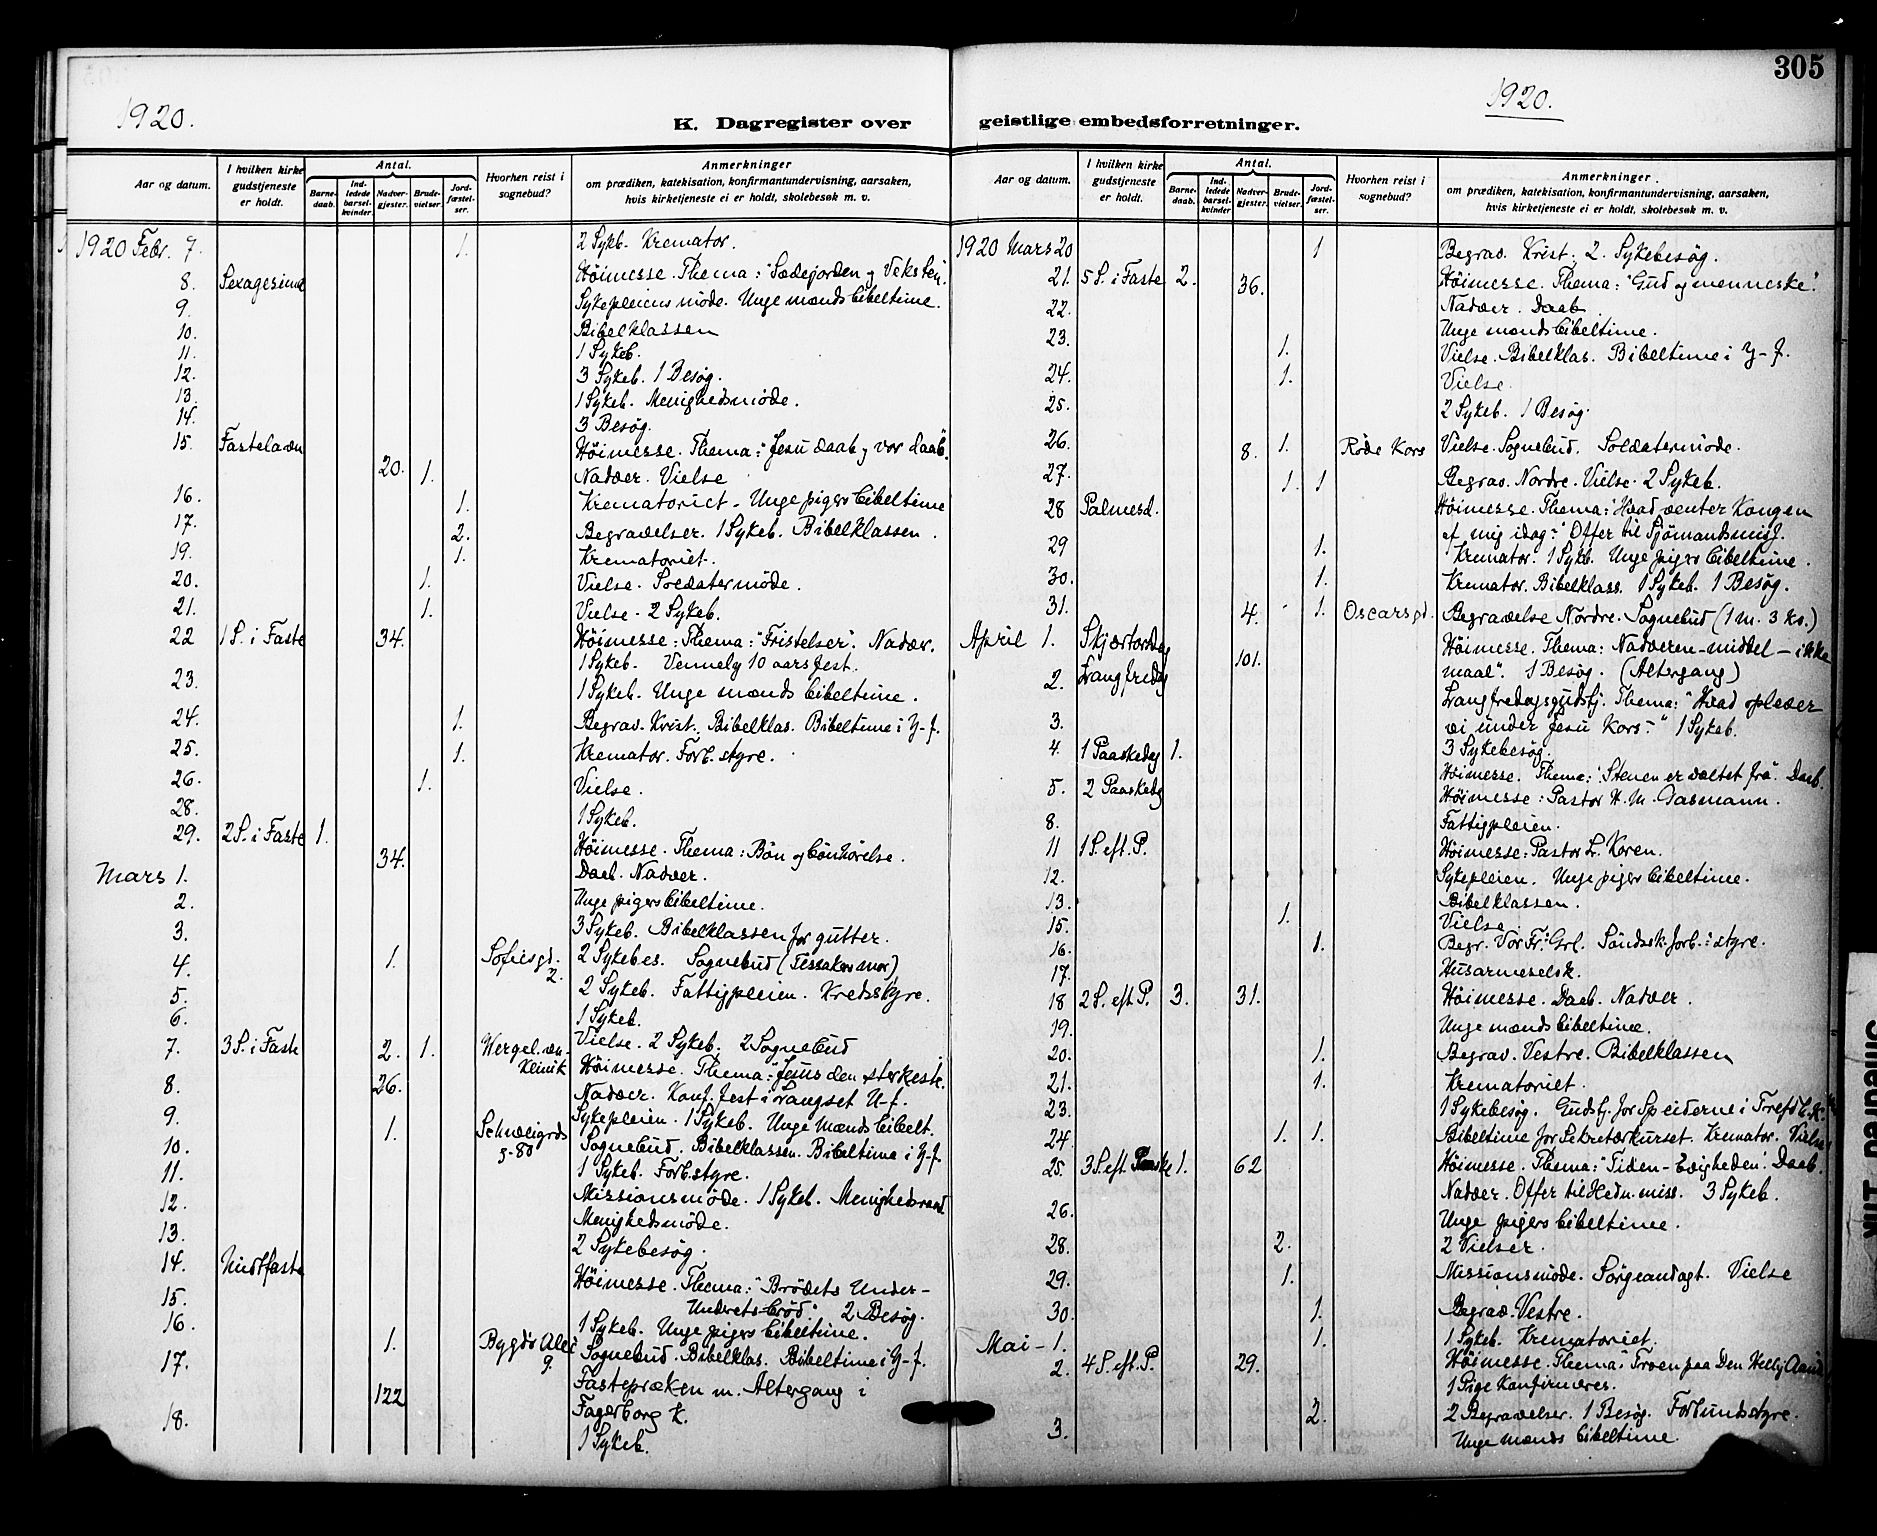 305
1920.
1920.
K. Dagregister over geistlige embedsforretninger.
Aar og datum. I hvilken kirke gudstjeneste er holdt. Antal. Barne-daab. Ind-ledede barsel-kvinder. Nadver-gjester. Brude-vielser. Jord-fæstel-ser. Hvorhen reist i sognebud? Anmerkninger om prædiken, katekisation, konfirmantundervisning, aarsaken, hvis kirketjeneste ei er holdt, skolebesøk m. v.
1920 Febr. 7. 1. 2 Sykb. Kremator.
8. Sexagesima Høimesse. Thema: "Sædejorden og Veksten".
9. Sykepleiens møde. Unge mænds bibeltime.
10. Bibelklassen
11. 1 Sykeb.
12. 3 Sykeb. 1 Besøg.
13. 1 Sykeb. Menighedsmøde.
14. 3 Besøg.
15. Fastelavn Høimesse. Thema: "Jesu daab og vor daab".
20. 1. Nadver. Vielse
16. 1. Krematoriet - Unge pigers bibeltime
17. 2. Begravelser. 1 Sykeb. Bibelklassen.
19. 1. Krematoriet.
20. 1. Vielse. Soldatermøde.
21. 1. Vielse - 2 Sykeb.
22 1 S. i Faste 34. Høimesse: Thema: "Fristelser". Nadver.
1 Sykeb. Vennely 10 aars fest.
23. 1 Sykeb. Unge mænds bibeltime.
24. 1. Begrav. Krist. Bibelklas. Bibeltime i Y-f.
25. 1. Kremator. Forb. styre.
26. 1. Vielse.
28. 1 Sykeb.
29. 2 S. i Faste 1. 34. Høimesse. Thema: Bøn og bønhørelse.
Daab. Nadver.
Mars 1. Unge pigers bibeltime.
2. 3 Sykeb. Bibelklassen for gutter.
3. 1. Sofiesgd. 2. 2 Sykebes. Sognebud
4. 2 Sykeb. Fattigpleien. Kredsstyre.
5. 1 Sykeb.
6. 2. 1. Wergel.vn. Klinik Vielse. 2 Sykeb. 2 Sognebud
7. 3 S. i Faste 26. Høimesse. Thema: Jesus den sterkeste.
Nadver. Konf. fest i U-f.
8. Sykepleien. 1 Sykeb. Unge Mænds bibelt.
9. 1. Schweigrds g. 80 Sognebud. Bibelklassen. Bibeltime i Y-f
10. 1 Sykeb. Forb. styre.
11. Missionsmøde. 1 Sykeb. Menighedsraad
12. Menighedsmøde.
13. 2 Sykebesøg.
14. Midtfaste Høimesse. Thema: "Brødets Under -
Underets brød." 2 Besøg.
15. 1 Sykeb. Unge pigers bibeltime.
16. 1. Bygdø Alé 9. Sognebud. Bibelklas. Bibeltime i Y-f.
17. 122 Fastepræken m. Altergang i
Fagerborg K.
18. 1 Sykeb.
Aar og datum. I hvilken kirke gudstjeneste er holdt. Antal. Barne-daab. Ind-ledede barsel-kvinder Nadver-gjester. Brude-vielser. Jord-fæstel-ser. Hvorhen reist i sognebud? Anmerkninger. om prædiken, katekisation, konfirmantundervisning, aarsaken, hvis kirketjeneste ei er holdt, skolebesøk m. v.
1920 Mars 20 1 Begrav. Krist. 2. Sykebesøg.
21. 5 S. i Faste 2. 36. Høimesse. Thema: "Gud og menneske".
Nadver. Daab.
22. Unge mænds bibeltime.
23. 1. Vielse. Bibelklas. Bibeltime i Y-f.
24. 1. Vielse.
25. 2 Sykeb. 1 Besøg.
26. 8. 1. Røde Kors Vielse. Sognebud. Soldatermøde.
27. 1 1 Begrav. Nordre. Vielse. 2 Sykeb.
28 Palmesd. Høimesse. Thema: "Hvad venter Kongen
af mig idag?" Offer til Sjømandsmis.
29 1. Kremator. 1 Sykb. Unge pigers bibeltime.
30. 1. Kremator. Bibelklass. 1 Sykeb. 1 Besøg.
31. 4. 1. Oscarsgd. Begravelse Nordre. Sognebud (1 m. 3 kv.)
April 1. Skjærtorsdag 101. Høimesse. Thema: Nadveren - middel - ikke
maal". 1 Besøg. (Altergang)
2. Langfredag Langfredagsgudstj. Thema: "Hvad oplever
vi under Jesu Kors?" 1 Sykeb.
3. 3 Sykebesøg.
4. 1 Paaskedag 1. Høimesse. Thema: "Stenen er væltet fra". Daab.
5. 2 Paaskedg Høimesse: Pastor H. M. Gasmann.
8. Fattigpleien.
11 1 S. eft. P. Høimesse: Pastor L. Koren.
12. Sykepleien. Unge pigers bibeltime.
13. Bibelklassen.
15. 1. Vielse
16. 1. Begr. Vor Fr. Grl. Søndssk. forb.: styre.
17.
18 2 S. eft. P. 3. 31. Høimesse. Daab. Nadver.
19. Unge mænds bibeltime.
20. 1. Begrav. Vestre. Bibelklassen
21. 1. Krematoriet.
23. 1 Sykebesøg. Gudstj. for Speiderne i
24. 1. 1. Bibeltime for Sekretærkurset. Kremator. Vielse
25. 3 S. eft. Paaske 1. 62 Høimesse. Thema: "Tiden - Evigheden". Daab.
Nadver. Offer til Hedn. miss. 3 Sykeb.
26. Unge pigers bibeltime.
28. 2. 2 Vielser.
29. 1. Missionsmøde. Sørgeandagt. Vielse
30. 1. Begrav. Vestre.
Mai - 1. 1. 1 Sykeb. Krematoriet.
2. 4 S. eft. P. 29. Høimesse. Thema: Troen paa Den Hellig Aand
1 Pige Konfirmeres.
3. 2. 2 Begravelser. 1 Besøg. Forbundsstyre.
Unge mænds bibeltime